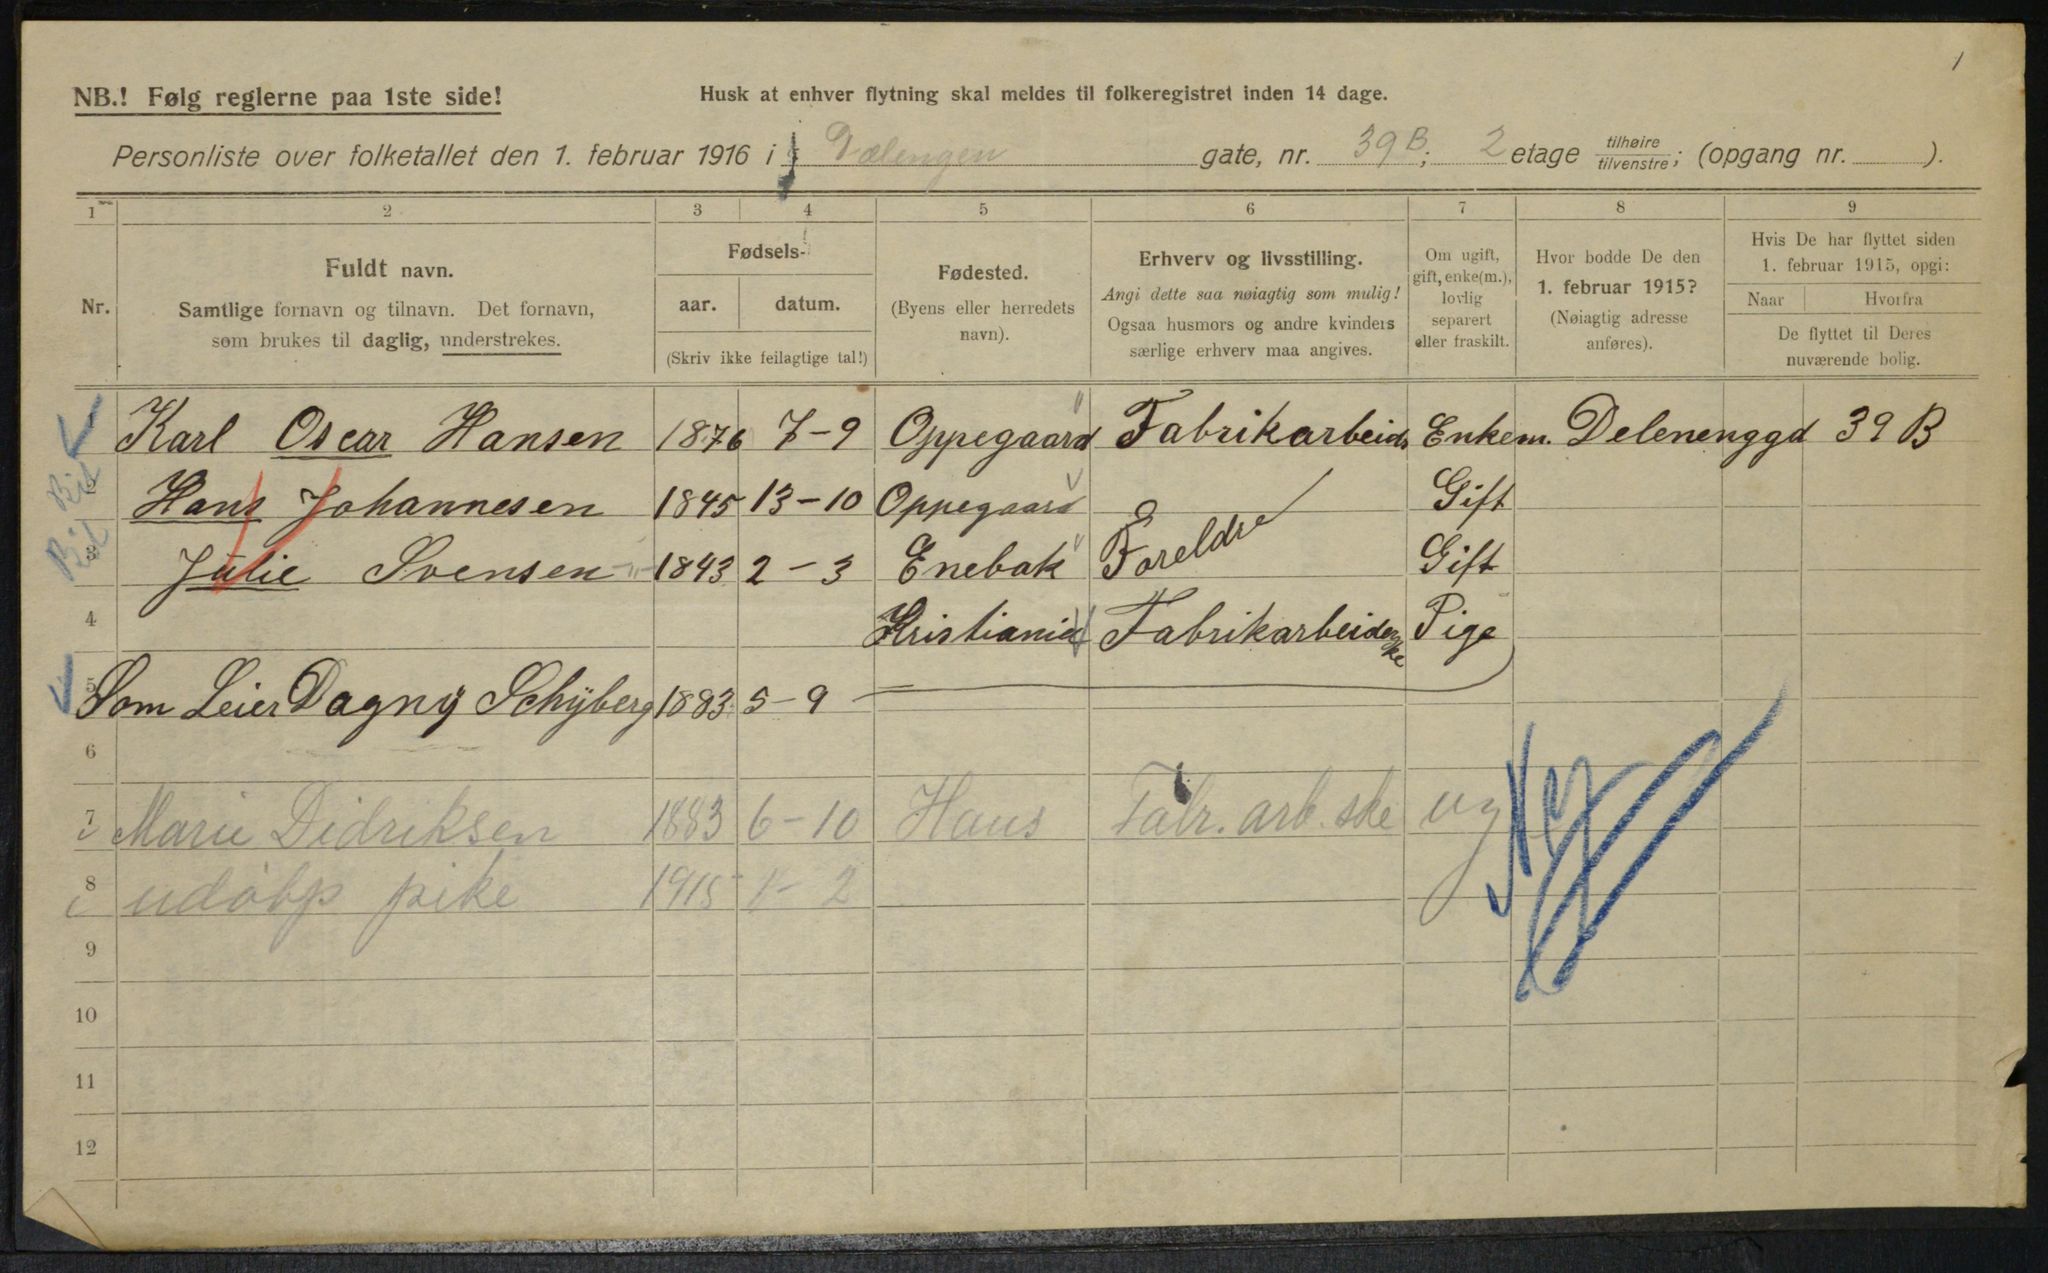 1
NB.! Følg reglerne paa 1ste side! Husk at enhver flytning skal meldes til folkeregistret inden 14 dage.
Personliste over folketallet den 1. februar 1916 i Dælengen gate, nr. 39B; 2 etage tilhøire tilvenstre; (opgang nr. ).
1 2 3 4 5 6 7 8 9
Nr.
Fuldt navn.
Samtlige fornavn og tilnavn. Det fornavn,
som brukes til daglig, understrekes.
Fødsels-
aar. datum.
(Skriv ikke feilagtige tal!)
Fødested.
(Byens eller herredets
navn).
Erhverv og livsstilling.
Angi dette saa nøiagtig som mulig!
Ogsaa husmors og andre kvinders
særlige erhverv maa angives.
Om ugift,
gift, enke(m.),
lovlig
separert
eller fraskilt.
Hvor bodde De den
1. februar 1915?
(Nøiagtig adresse
anføres).
Hvis De har flyttet siden
1. februar 1915, opgi:
Naar Hvorfra
De flyttet til Deres
nuværende bolig.
Karl Oscar Hansen 1876 7-9 Oppegaard Fabrikarbeid Enkem. Delenenggd 39 B
Hans Johannesen 1845 13-10 Oppegaard Gift
3 Julie Svensen 1843 2-3 Enebak Foreldre Gift
4 Kristiania Fabrikarbeiderske Pige
5 Som Leier Dagny Schyberg 1883 5-9
6
7 Marie Didriksen 1883 6-10 Haus Fabr.arb.ske ug
8 udøbp pike 1915 1-2
9
10
11
12